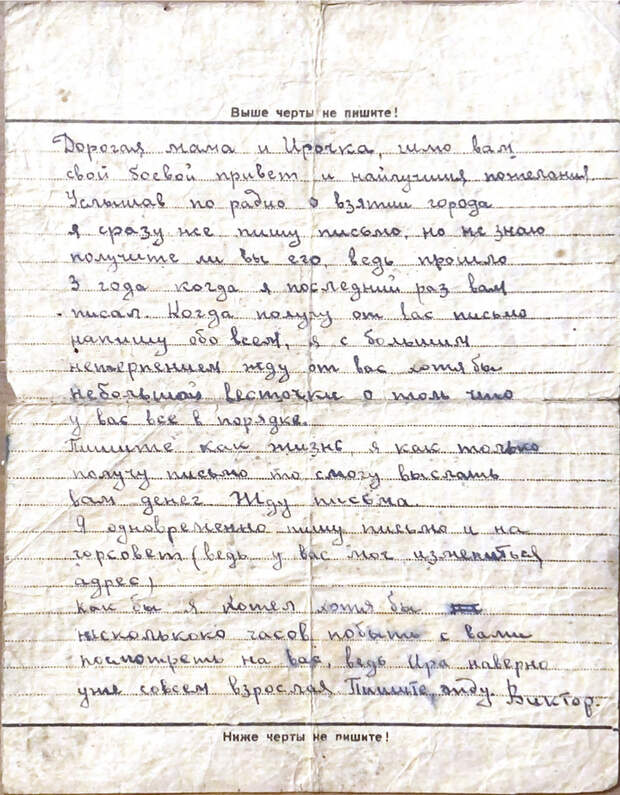 Выше черты не пишите!
Дорогая мама и Ирочка, шлю вам
свой боевой привет и найлучшия пожелания.
Услышав по радио о взятии города
я сразу же пишу письмо, но не знаю
получите ли вы его, ведь прошло
3 года когда я последний раз вам
писал. Когда получу от вас письмо
напишу обо всем, я с большим
нетерпением жду от вас хотя бы
небольшой весточки о том что
у вас все в порядке.
Пишите как жизнь, я как только
получу письмо то смогу выслать
вам денег Жду письма.
Я одновременно пишу письмо и на
горсовет (ведь у вас мог измениться
адрес)
Как бы я хотел хотя бы
несколькоко часов побыть с вами
посмотреть на вас, ведь Ира наверно
уже совсем взрослая Пишите, жду. Виктор.
Ниже черты не пишите!